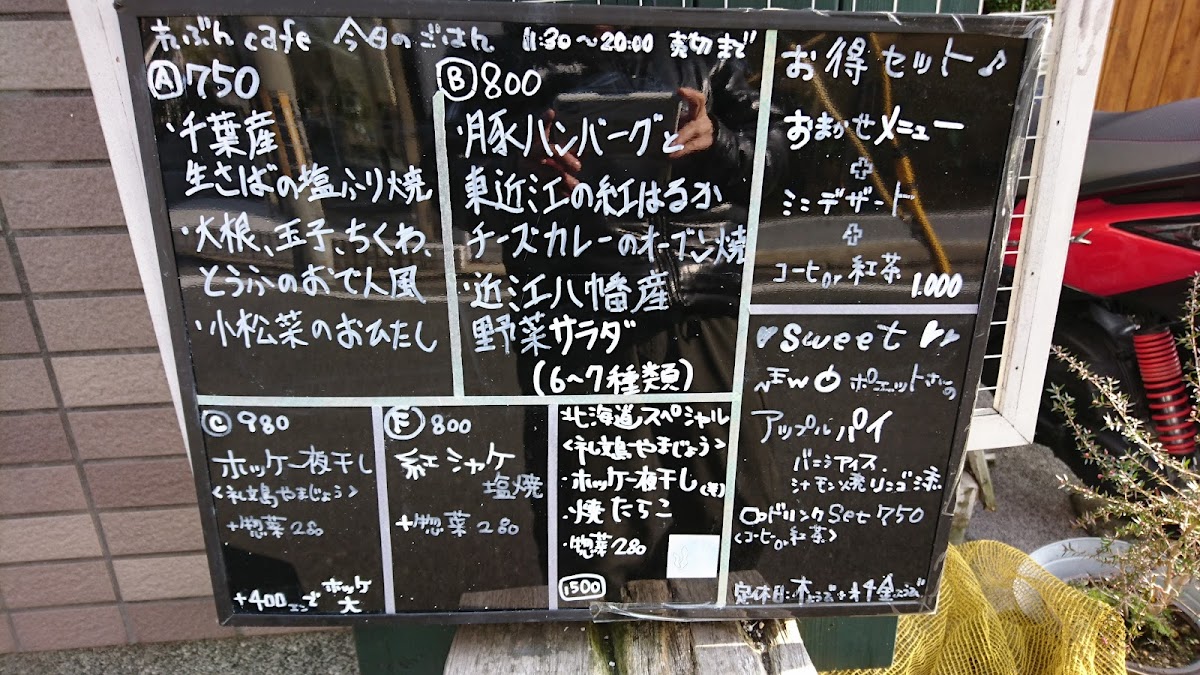 れぶん cafe 今日のごはん 11:30〜20:00 売切まで
Ⓐ750
・千葉産
生さばの塩ふり焼
・大根、玉子、ちくわ、
とうふのおでん風
・小松菜のおひたし
Ⓑ800
・豚ハンバーグと
東近江の紅はるか
チーズカレーのオーブン焼
・近江八幡産
野菜サラダ
(6〜7種類)
お得セット♪
おまかせメニュー
+
ミニデザート
+
コーヒーor紅茶 1.000
♥sweet♥
NEW ポエットさんの
アップルパイ
バニラアイス、
シナモン焼リンゴ添
ドリンクSet 750
<コーヒーor紅茶>
定休日:
Ⓒ980
ホッケ一夜干し
<礼文島やまじょう>
+惣菜280
+400エンでホッケ大
Ⓕ800
紅シャケ
塩焼
+惣菜280
北海道スペシャル
<礼文島やまじょう>
・ホッケ一夜干し
・焼たらこ
・惣菜280
1,500